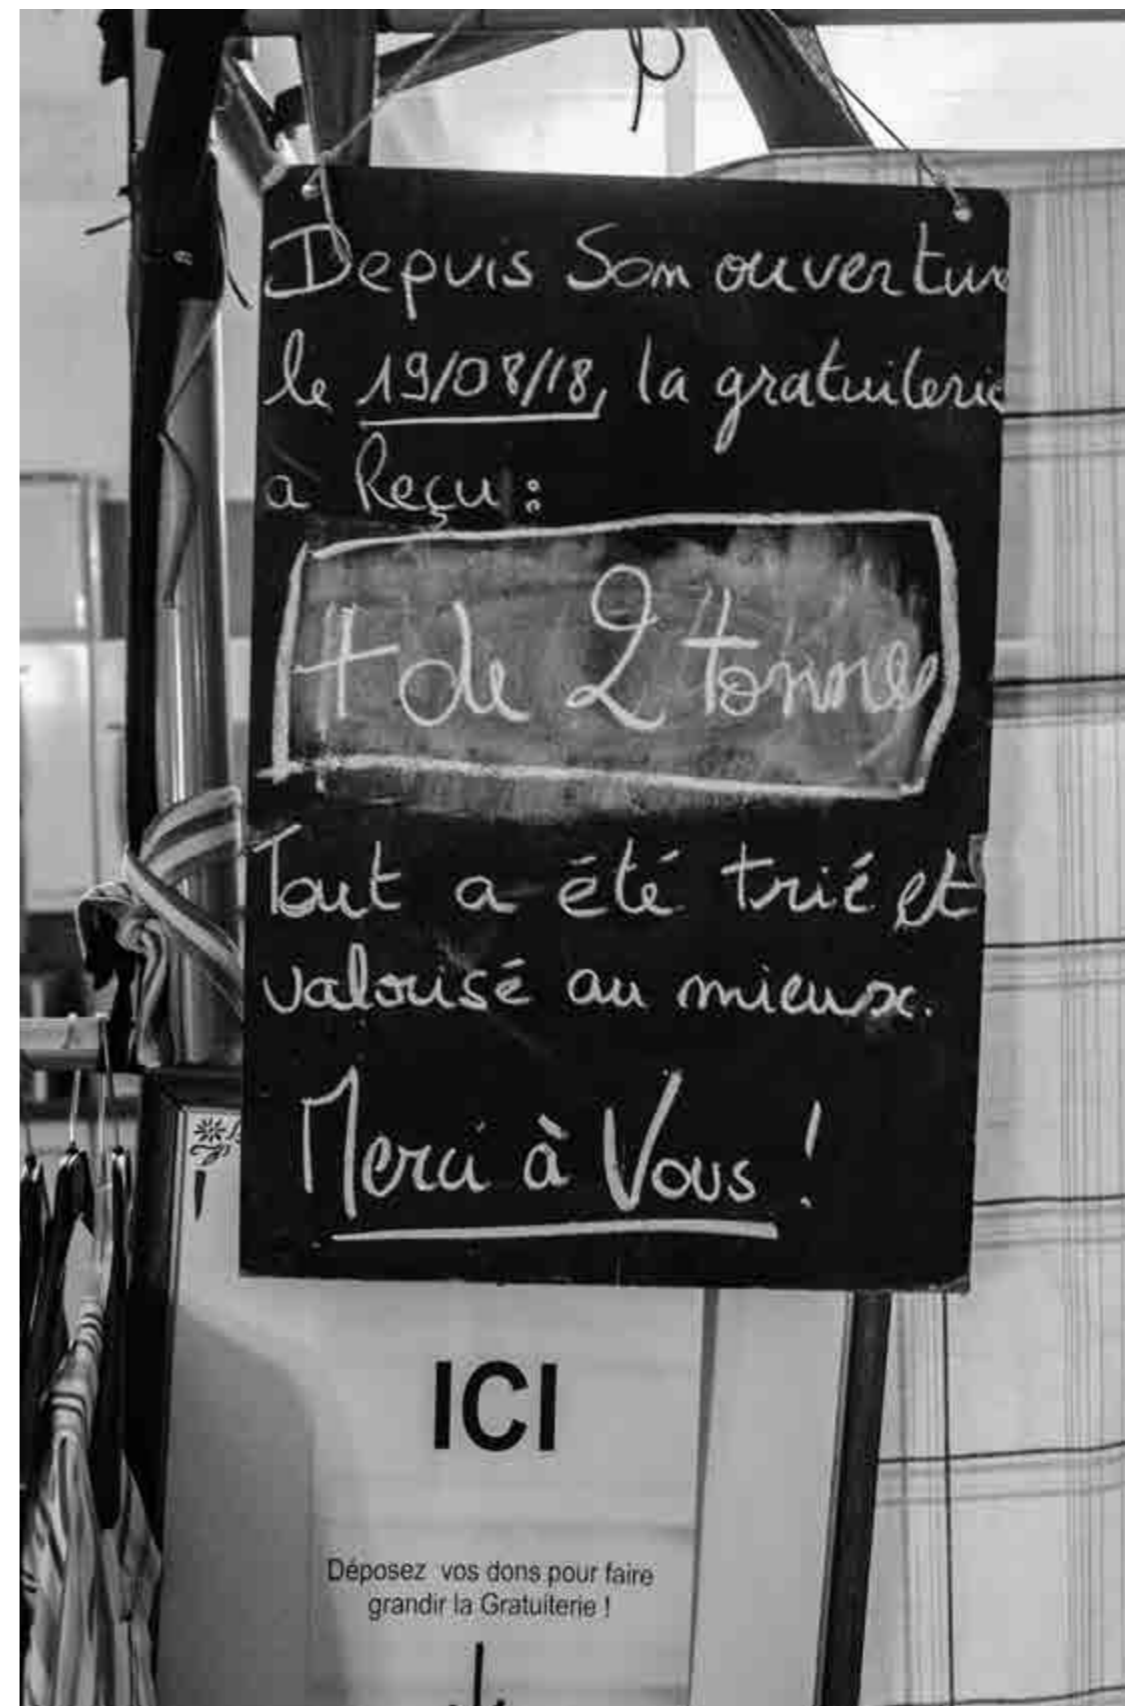 Depuis Son ouverture
le 19/08/18, la gratuiterie
a Reçu :
+ de 2 tonnes
Tout a été trié et
valorisé au mieux.
Merci à Vous !
ICI
Déposez vos dons pour faire
grandir la Gratuiterie !